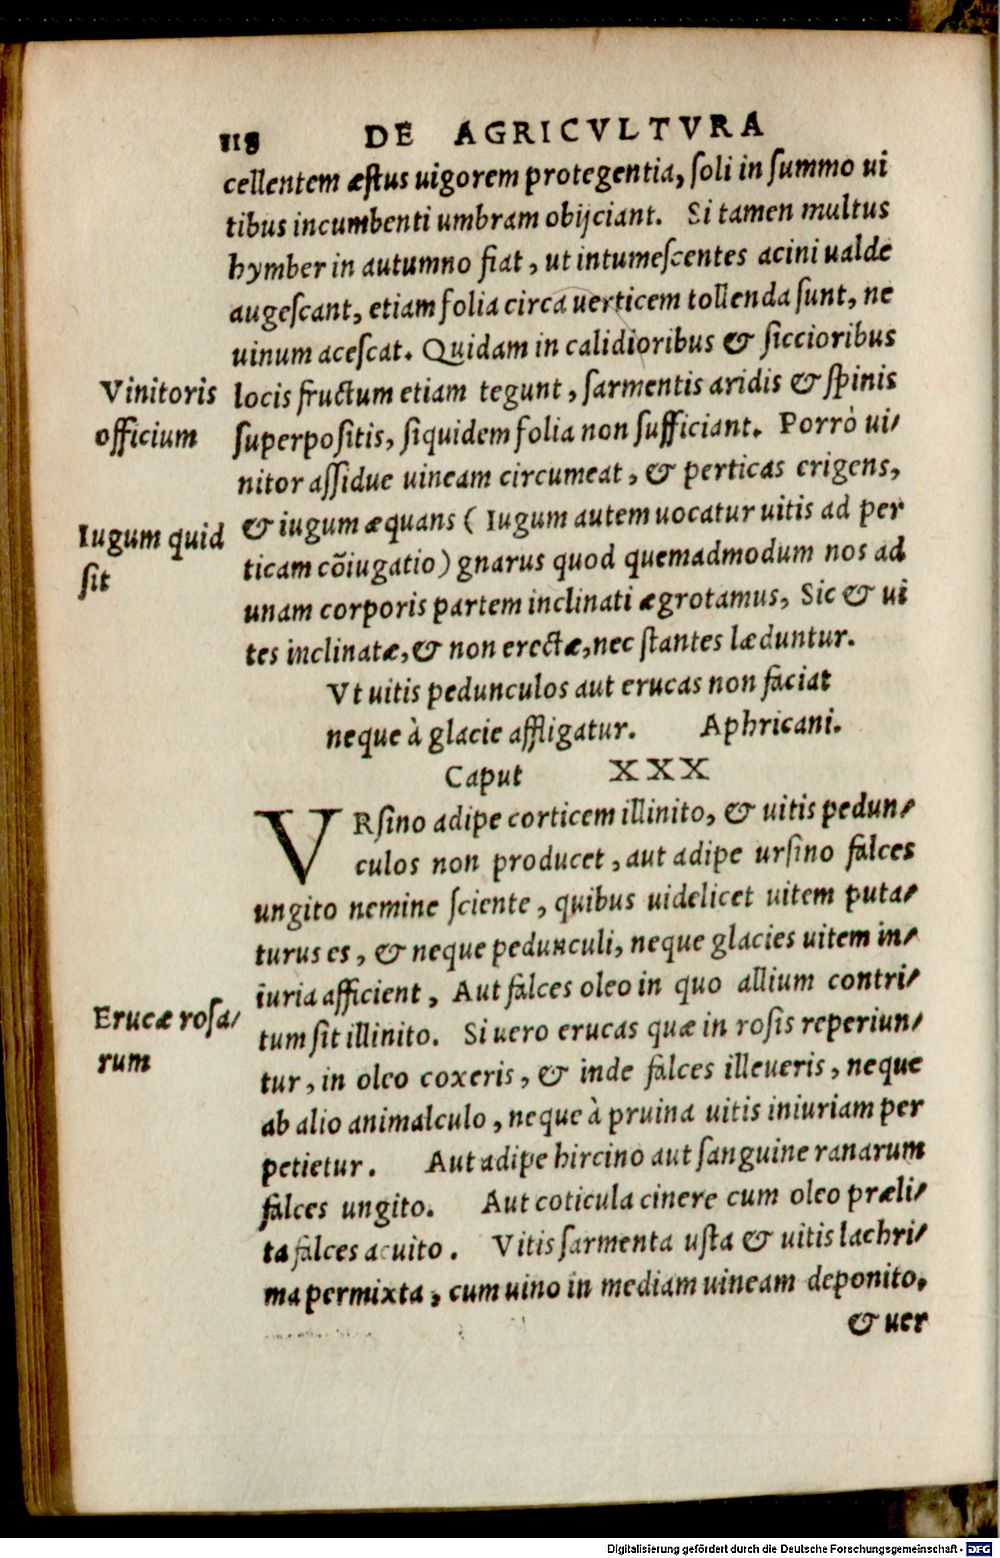 118 DE AGRICVLTVRA
cellentem æſtus uigorem protegentia, ſoli in ſummo ui
tibus incumbenti umbram obijciant. Si tamen multus
hymber in autumno fiat, ut intumeſcentes acini ualde
augeſcant, etiam folia circa uerticem tollenda ſunt, ne
uinum aceſcat. Quidam in calidioribus & ſiccioribus
Vinitoris
officium
locis fructum etiam tegunt, ſarmentis aridis & ſpinis
ſuperpoſitis, ſiquidem folia non ſufficiant. Porrò ui/
nitor aſſidue uineam circumeat, & perticas erigens,
Iugum quid
ſit
& iugum æquans ( Iugum autem uocatur uitis ad per
ticam cõiugatio) gnarus quod quemadmodum nos ad
unam corporis partem inclinati ægrotamus, Sic & ui
tes inclinatæ, & non erectæ, nec ſtantes læduntur.
Vt uitis pedunculos aut erucas non faciat
neque à glacie affligatur. Aphricani.
Caput XXX
VRſino adipe corticem illinito, & uitis pedun/
culos non producet, aut adipe urſino falces
ungito nemine ſciente, quibus uidelicet uitem puta/
turus es, & neque pedunculi, neque glacies uitem in/
iuria afficient, Aut falces oleo in quo allium contri/
Erucæ roſa/
rum
tum ſit illinito. Si uero erucas quæ in roſis reperiun/
tur, in oleo coxeris, & inde falces illeueris, neque
ab alio animalculo, neque à pruina uitis iniuriam per
petietur. Aut adipe hircino aut ſanguine ranarum
falces ungito. Aut coticula cinere cum oleo præli/
ta falces acuito. Vitis ſarmenta uſta & uitis lachri/
ma permixta, cum uino in mediam uineam deponito,
& uer
Digitalisierung gefördert durch die Deutsche Forschungsgemeinschaft - DFG